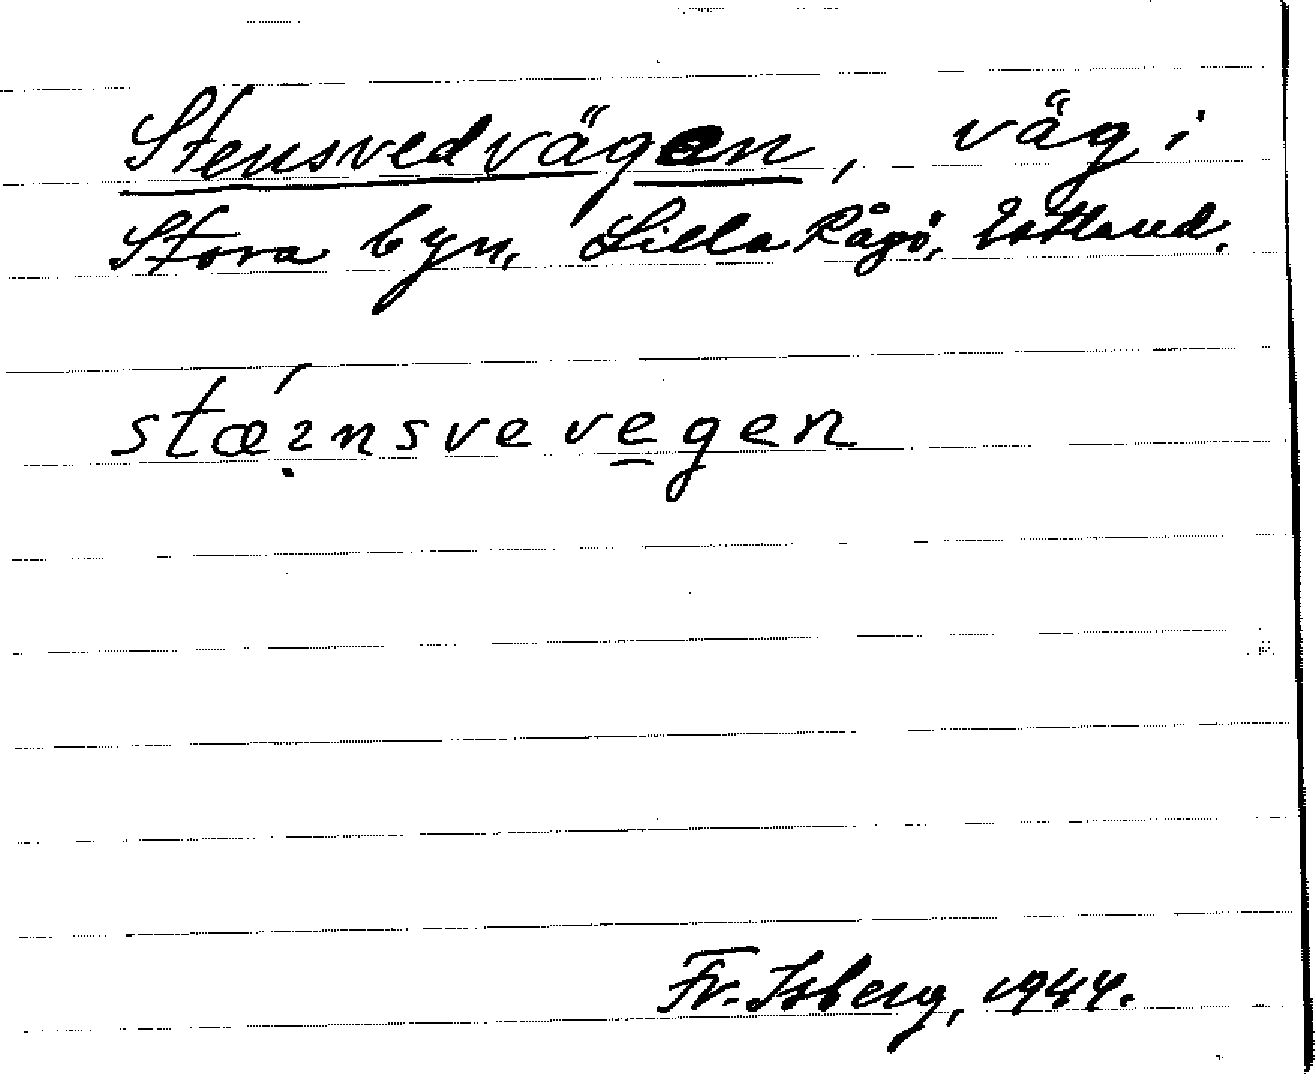 Stensvedvägen, väg i
Stora byn, Lilla Rågö, Estland.
stǽɪ̣nsveve̲gen
Fr. Isberg, 1944.